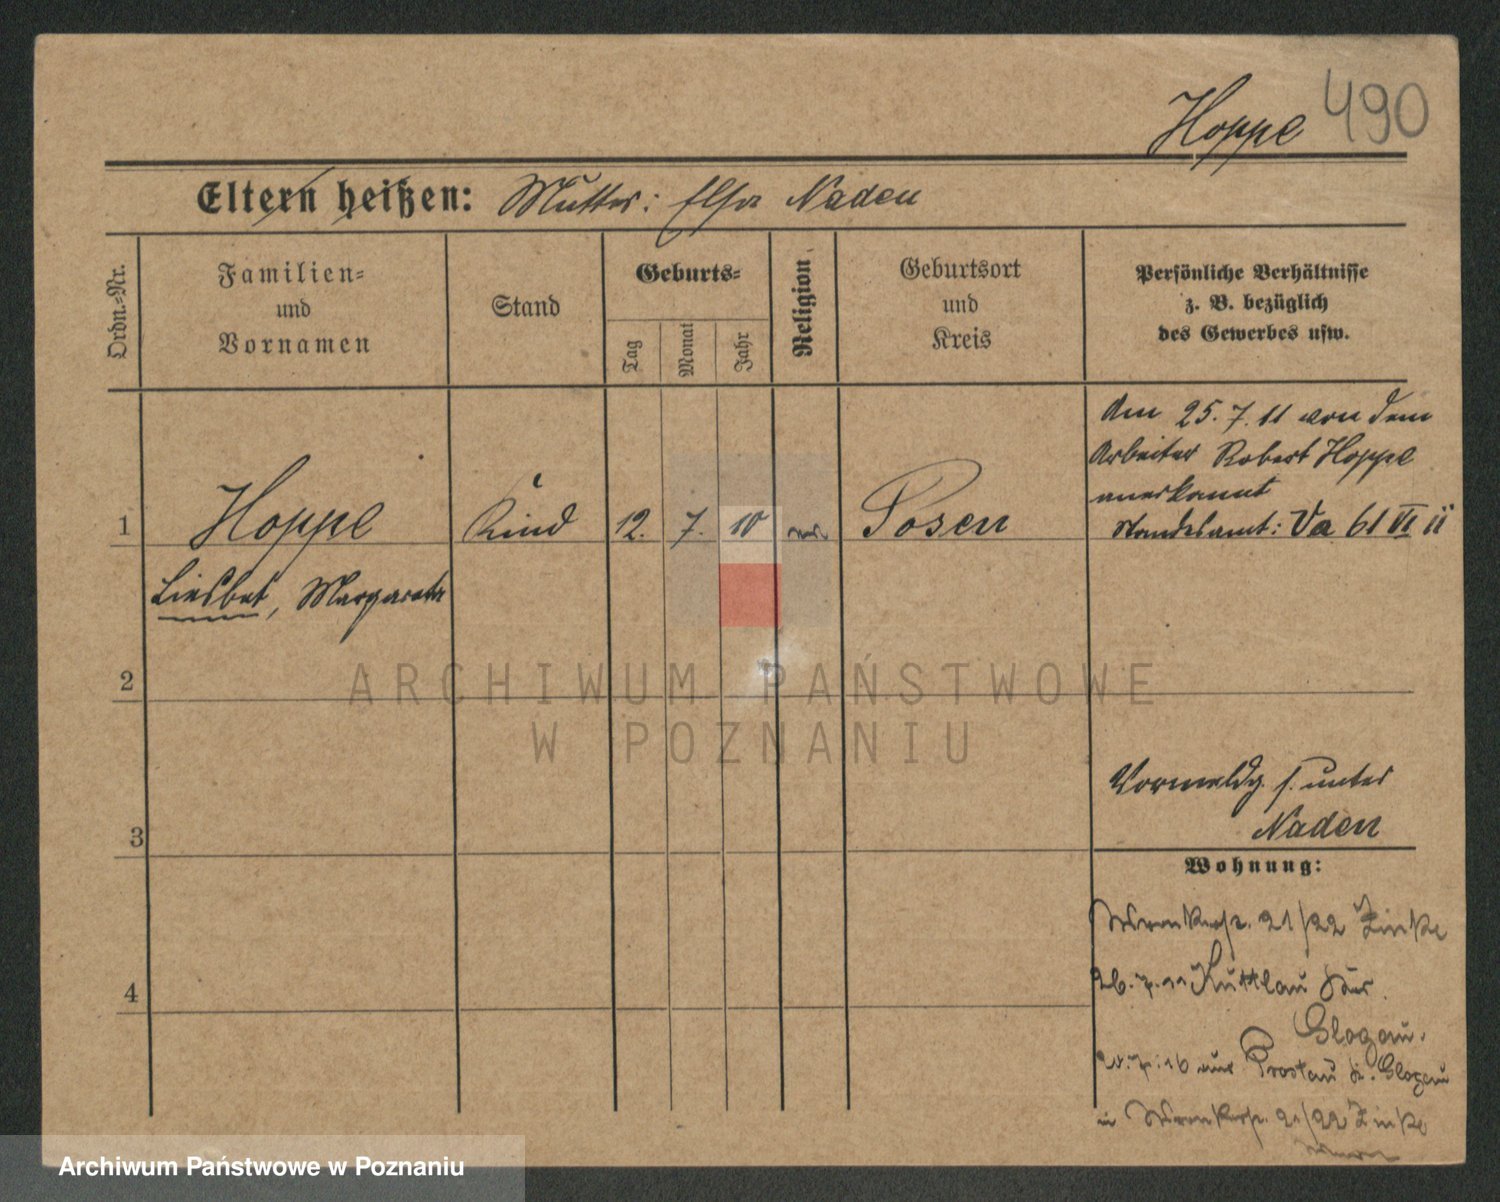 Hoppe 490
Eltern heißen: Mutter: Elsa Naden
Ordn.=Nr.
Familien=
und
Vornamen
Stand
Geburts=
Tag
Monat
Jahr
Religion
Geburtsort
und
Kreis
Persönliche Verhältnisse
z. B. bezüglich
des Gewerbes usw.
1
Hoppe
Kind
12. 7. 10
Posen
Am 25. 7. 11 von dem
Arbeiter Robert Hoppe
anerkannt
Standesamt: Va 61
Liesbet, Margareta
2
3
4
Vormeldg. s. unter
Naden
Wohnung:
21/22 Zinke
26. 7. 11 Kuttlau
Glogau.
Prostau Glogau
in 21/22 Zinke
ARCHIWUM PAŃSTWOWE
W POZNANIU
Archiwum Państwowe w Poznaniu